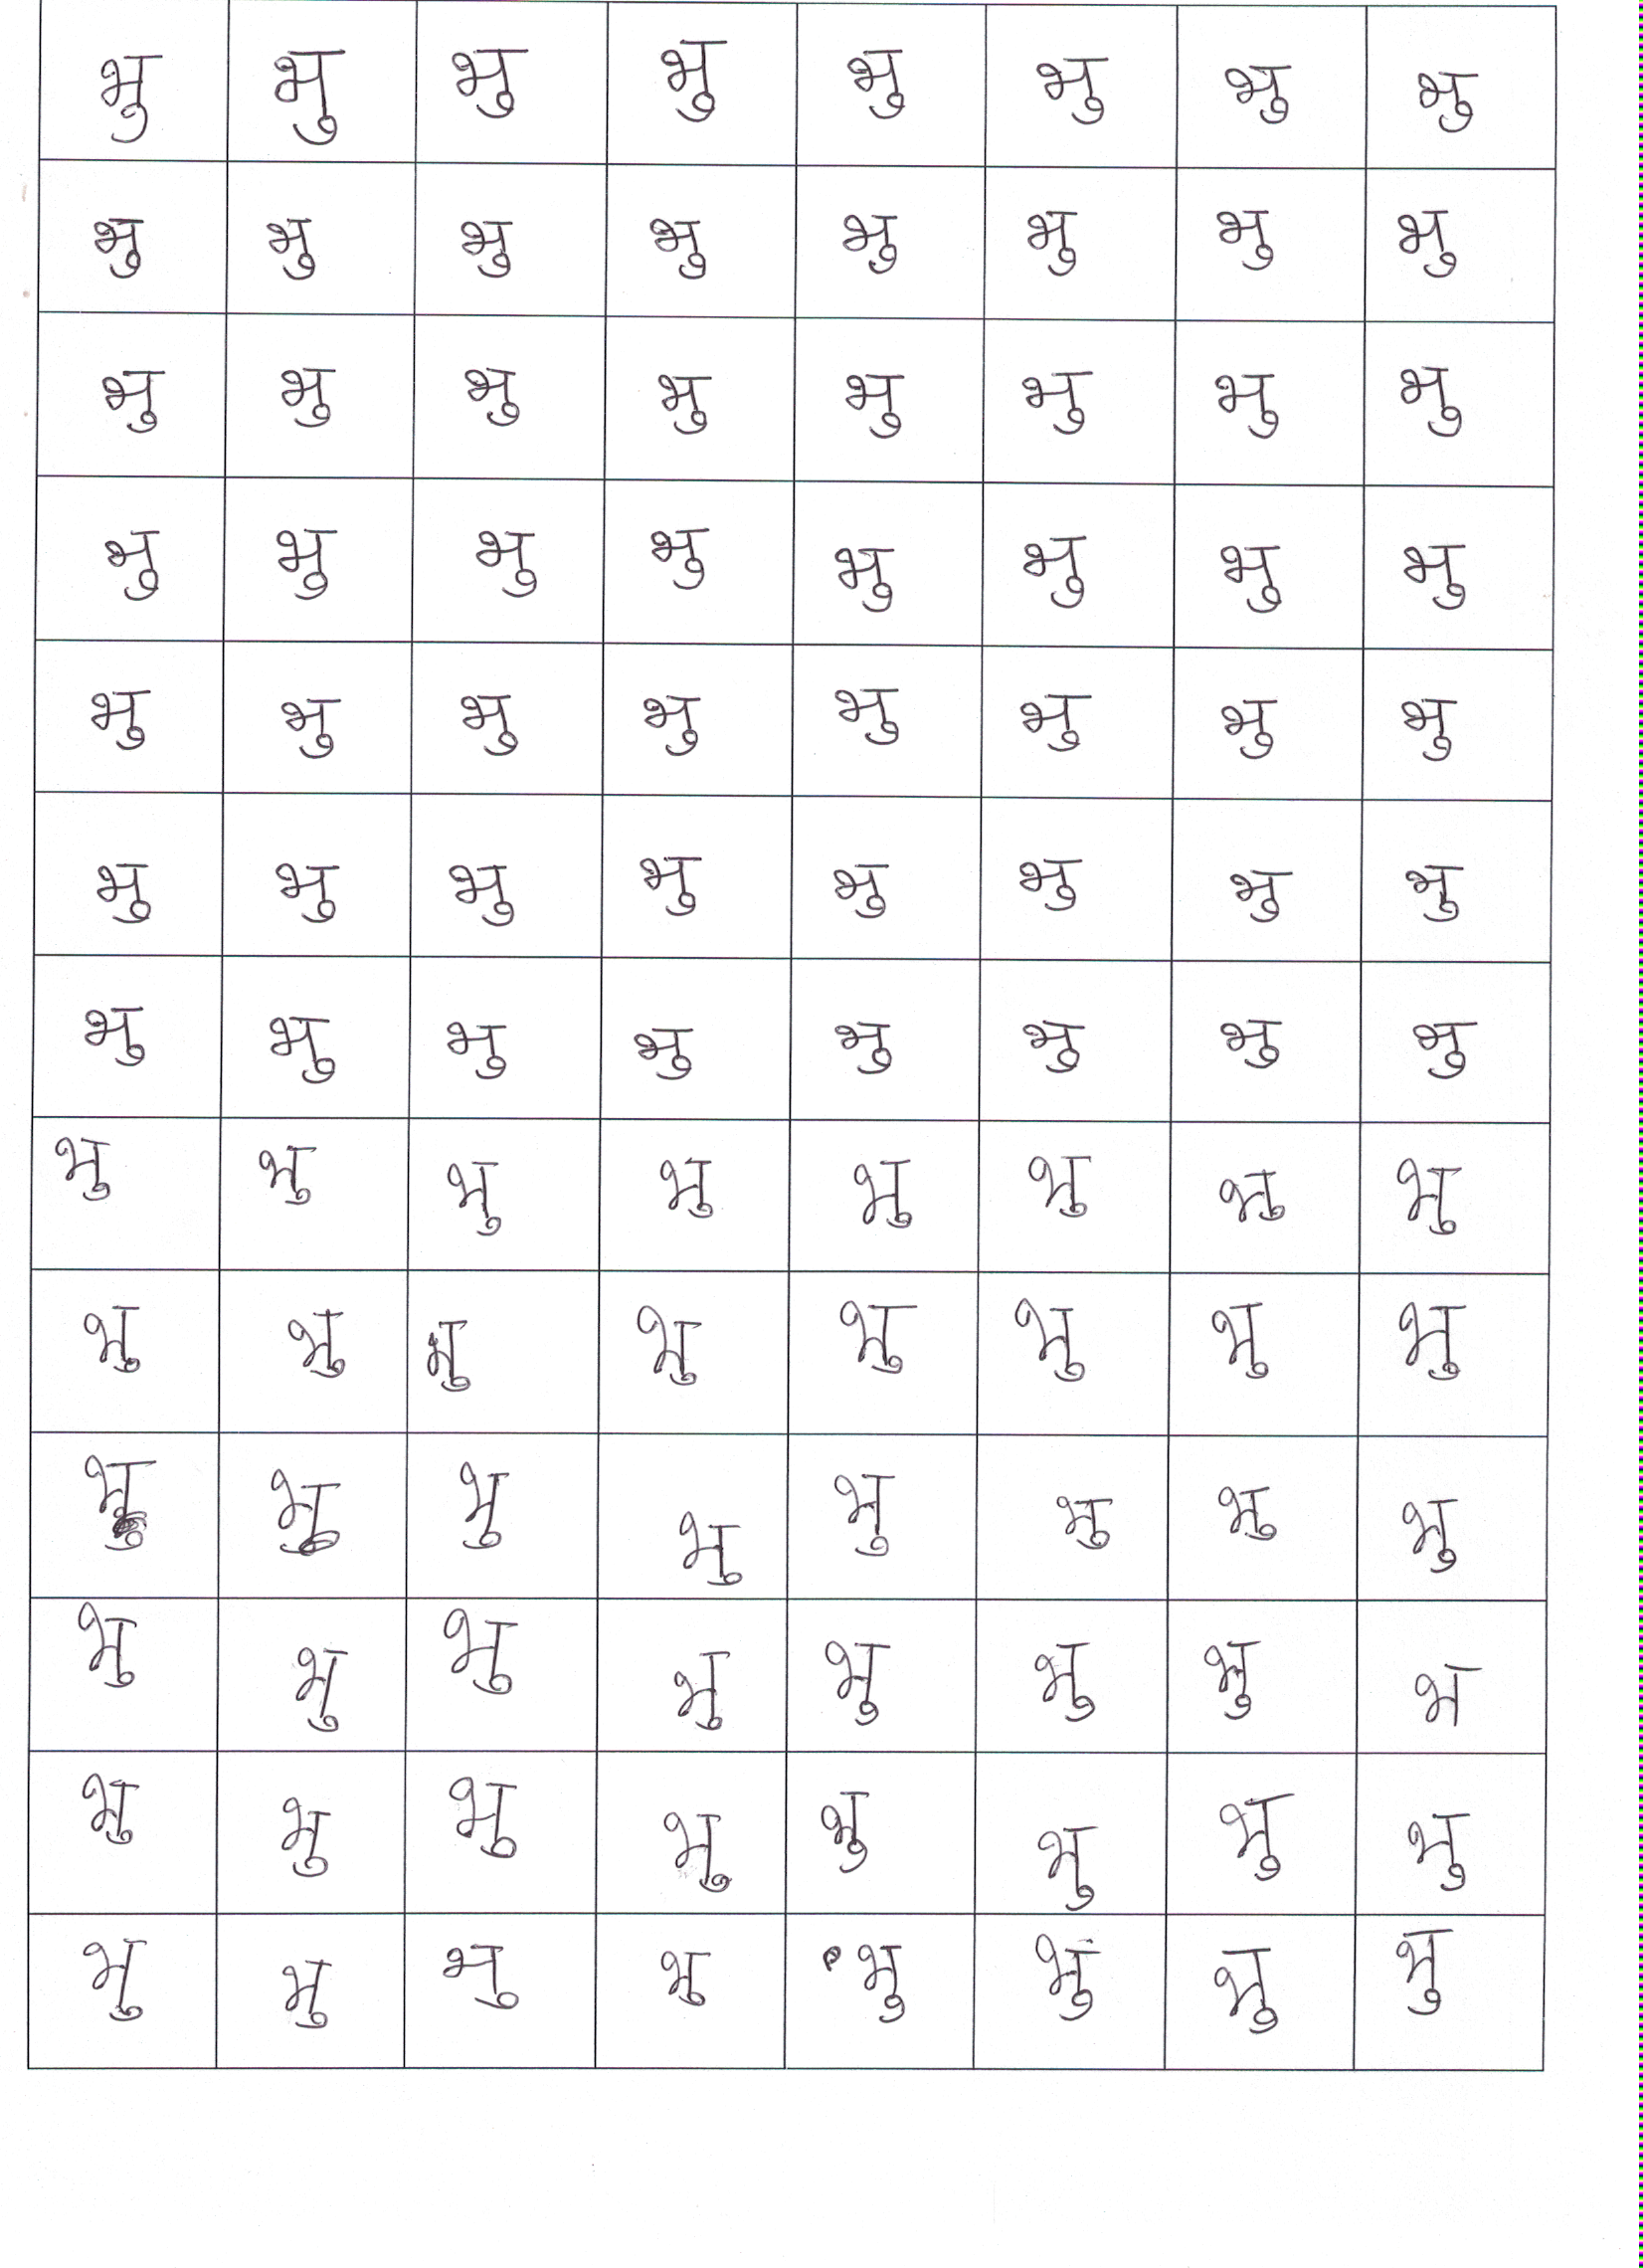 भु भु भु भु भु भु भु भु
भु भु भु भु भु भु भु भु
भु भु भु भु भु भु भु भु
भु भु भु भु भु भु भु भु
भु भु भु भु भु भु भु भु
भु भु भु भु भु भु भु भु
भु भु भु भु भु भु भु भु
भु भु भु भु भु भु भु भु
भु भु भु भु भु भु भु भु
भु भु भु भु भु भु भु भु
भु भु भु भु भु भु भु भ
भु भु भु भु भु भु भु भु
भु भु भु भु भु भु भु भु